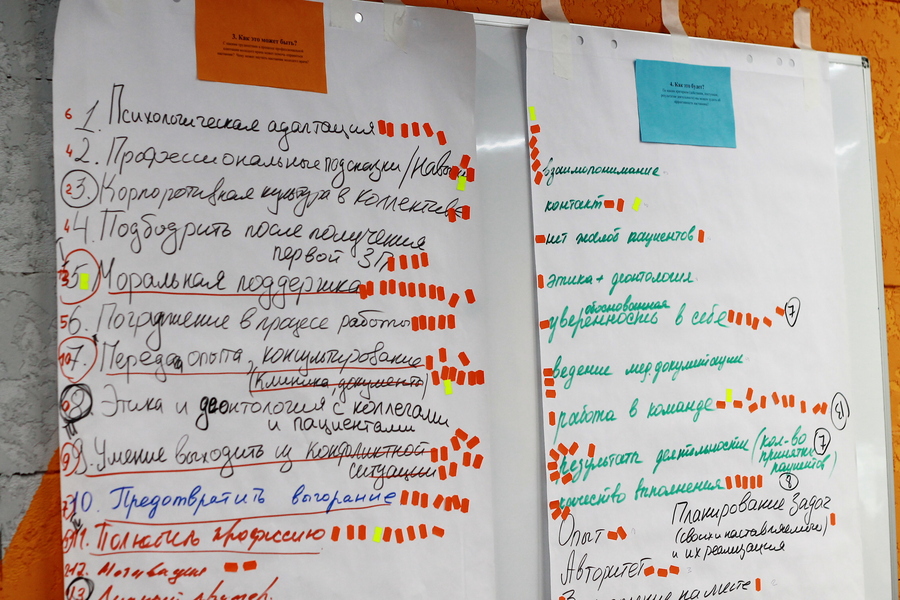 3. Как это может быть?
6 1. Психологическая адаптация
4 2. Профессиональные подсказки/навыки
2 3. Корпоротивная культура в коллективе
4 4. Подбодрить после получения
первой ЗП
5. Моральная поддержка
5 6. Погружение в процесс работы
10 7. Передача опыта, консультирование
(клиника, документы)
8 Этика и деонтология с коллегами
и пациентами
9 9. Умение выходить из конфликтной
ситуации
10. Предотвратить выгорание
11. Полюбить профессию
12. Мотивация
13. Личный пример.
4. Как это будет?
взаимопонимание
контакт
нет жалоб пациентов
этика + деонтология
обоснованная
уверенность в себе 7
ведение мед. документации
работа в команде
результаты деятельности (кол-во 7
принятых
пациентов)
качество выполнения 8
Опыт
Планирование задач
(своих и наставляемого)
и их реализация
Авторитет
на месте